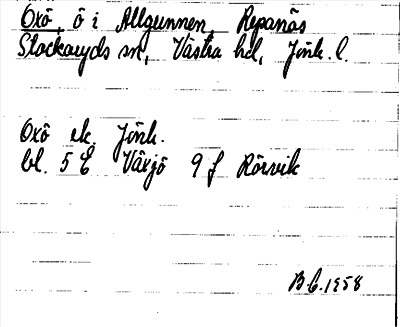 Oxö, ö i Allgunnen, Repanäs
Stockaryds sn, Västra hd, Jönk. l.
Oxö ek. Jönk.
bl. 5 E Växjö 9 f Rörvik
B.C. 1958